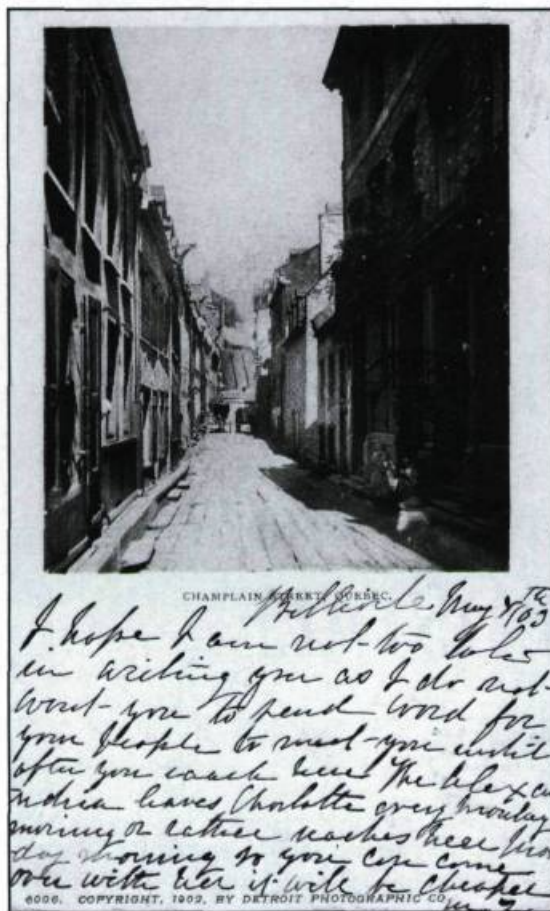 CHAMPLAIN STREET, QUEBEC.
Belleville May 4th/03
I hope I am not too late
in writing you as I do not
want you to send word for
your people to meet you until
after you reach here The Alexa
ndria leaves Charlotte every monday
morning or rather reaches here mon
day morning so you can come
over with her it will be cheaper
6006. COPYRIGHT, 1902, BY DETROIT PHOTOGRAPHIC CO